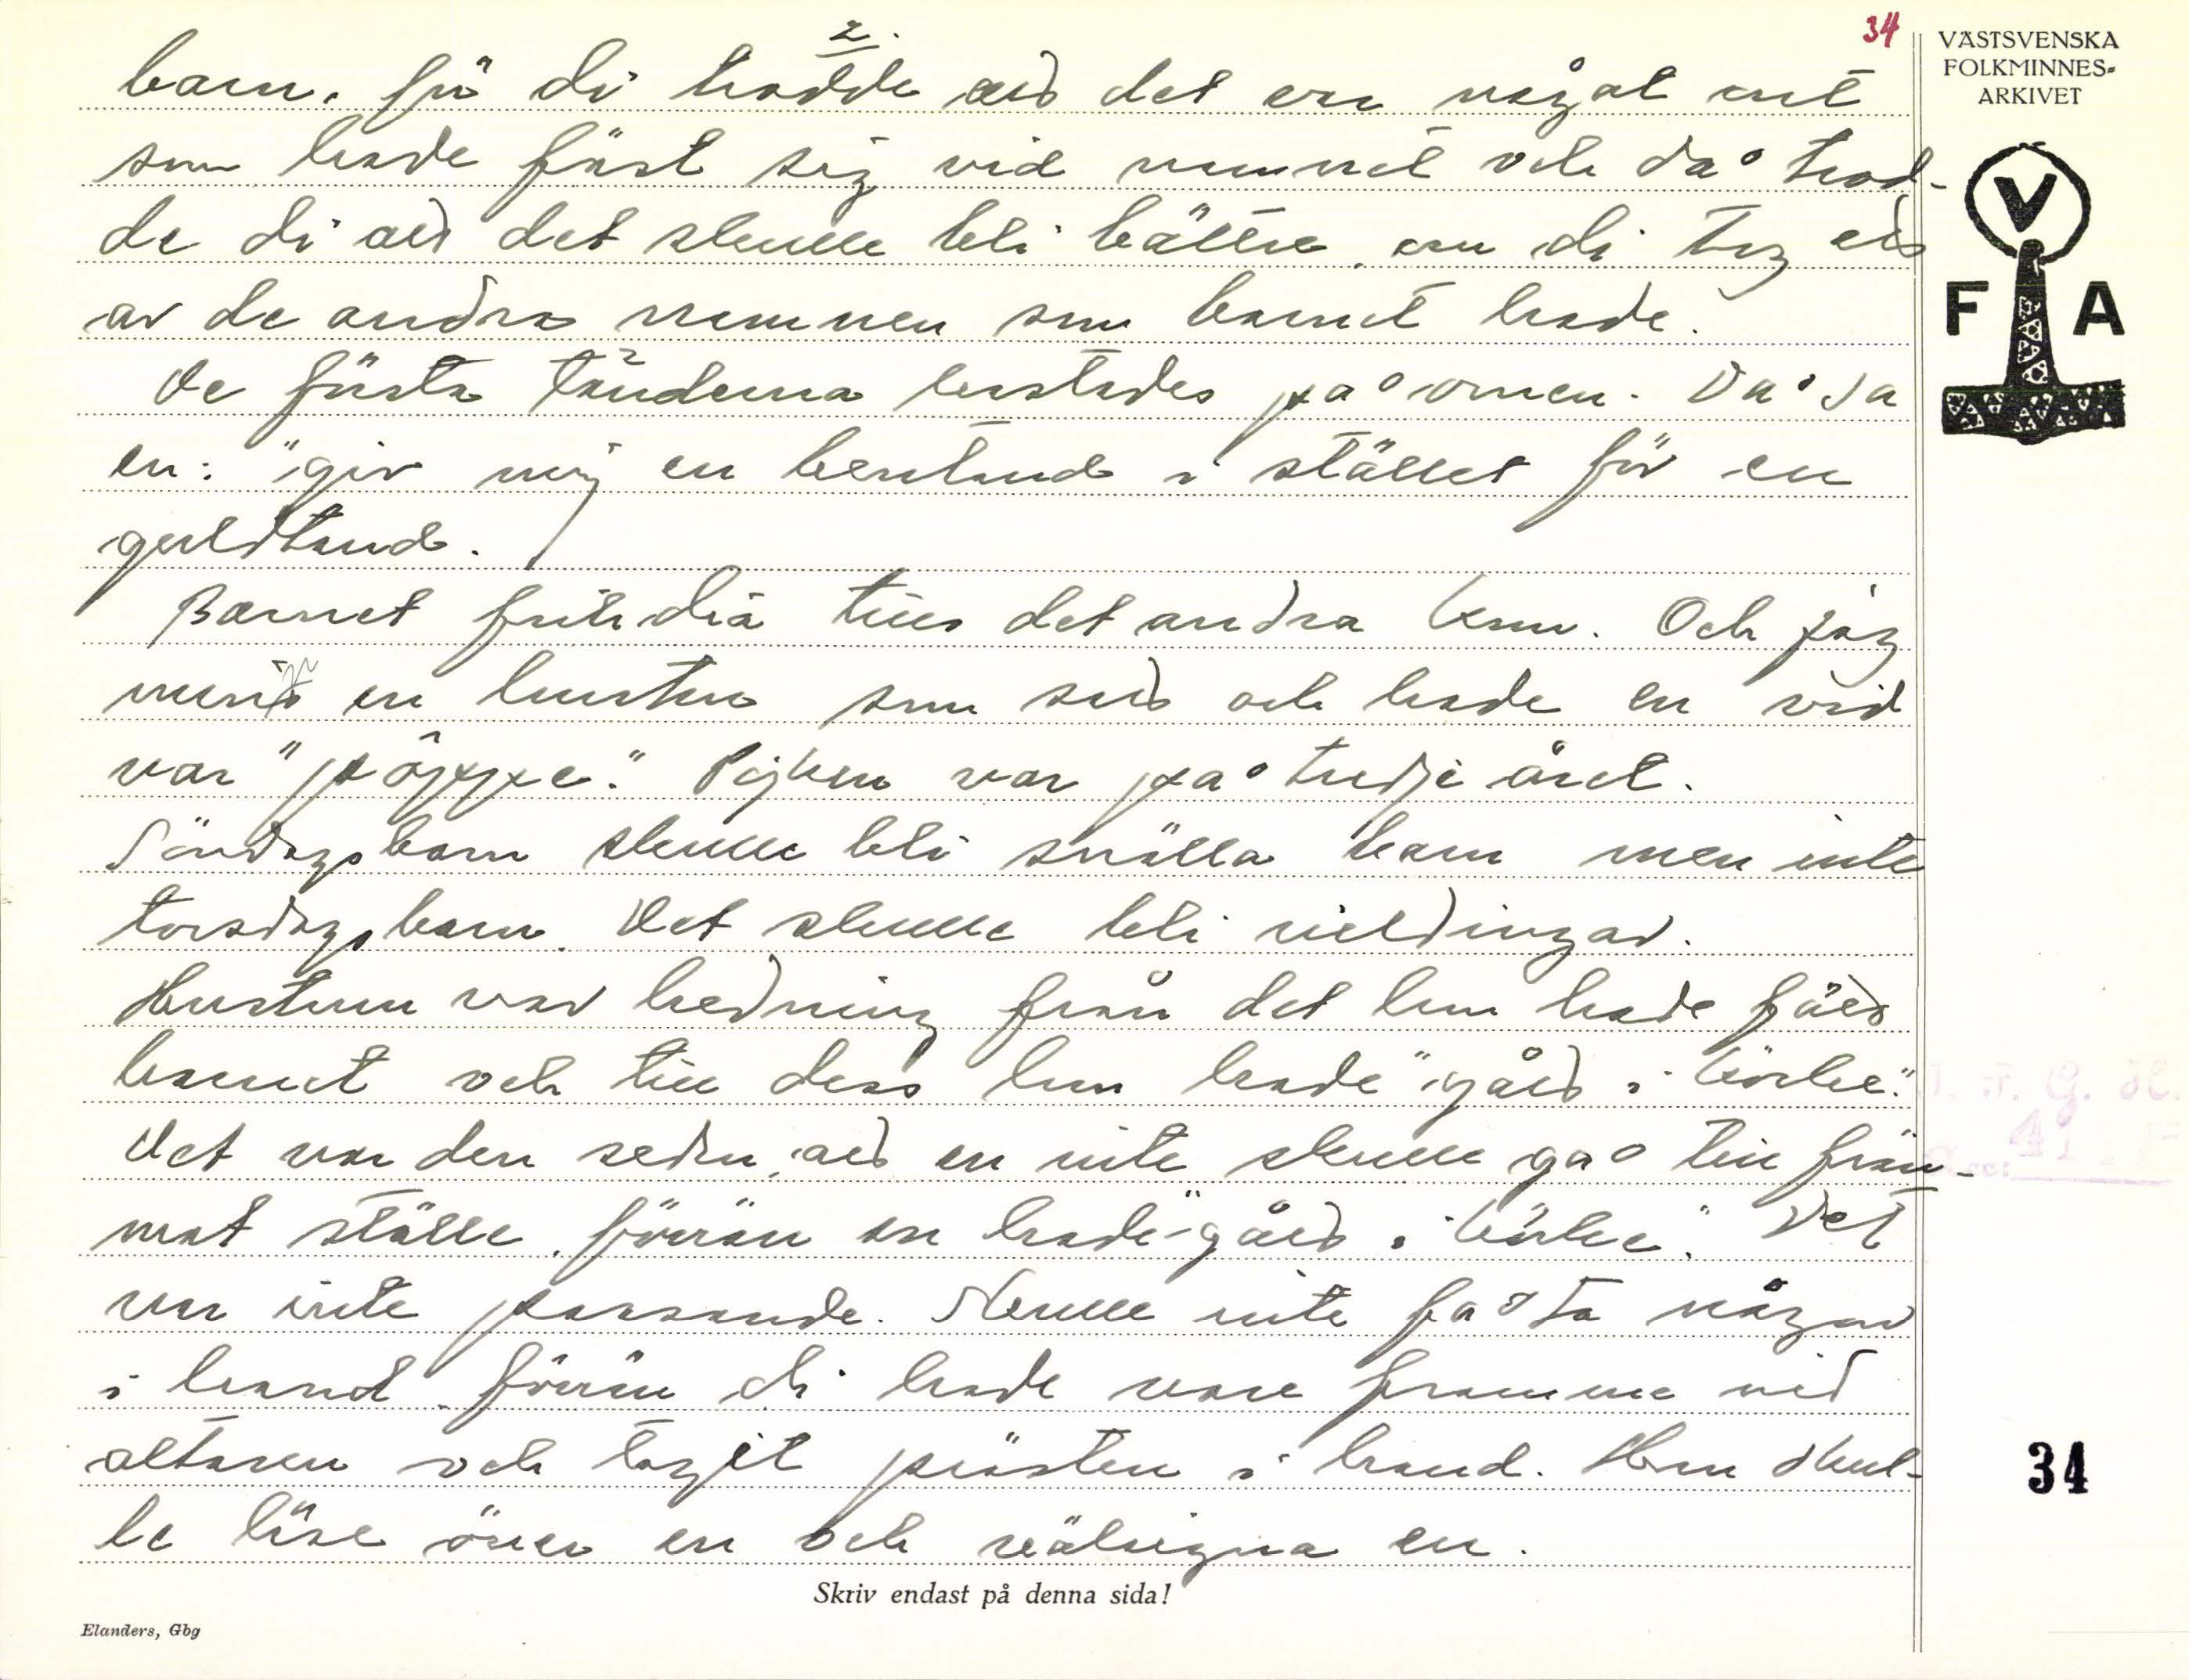 2.
34
VÄSTSVENSKA
FOLKMINNES-
ARKIVET
V
F A
barn, för di trodde att det var något ont
som hade fäst sig vid namnet och då trod-
de di att det skulle bli bättre, om di tog ett
av de andra namnen som barnet hade.
De första tänderna kastades på ornen. Då sa
en: "giv mig en bentand i stället för en
guldtand.
Barnet fick diä till det andra kom. Och jag
minns en hustru som satt och hade en vid
var "pöppe". Pojken var på tredje året.
Söndagsbarn skulle bli snälla barn men inte
torsdagsbarn. Det skulle bli vildingar.
Hustrun var hedning från det hon hade fått
barnet och till dess hon hade "gått i körke".
Det var den seden, att en inte skulle gå till främ-
mat ställe, förrän en hade "gått i körke". Det
var inte passande. Skulle inte få ta någon
i hand, förrän di hade vare framme vid
altaren och tagit prästen i hand. Han skul-
le läse över en och välsigna en.
34
Skriv endast på denna sida!
Elanders, Gbg